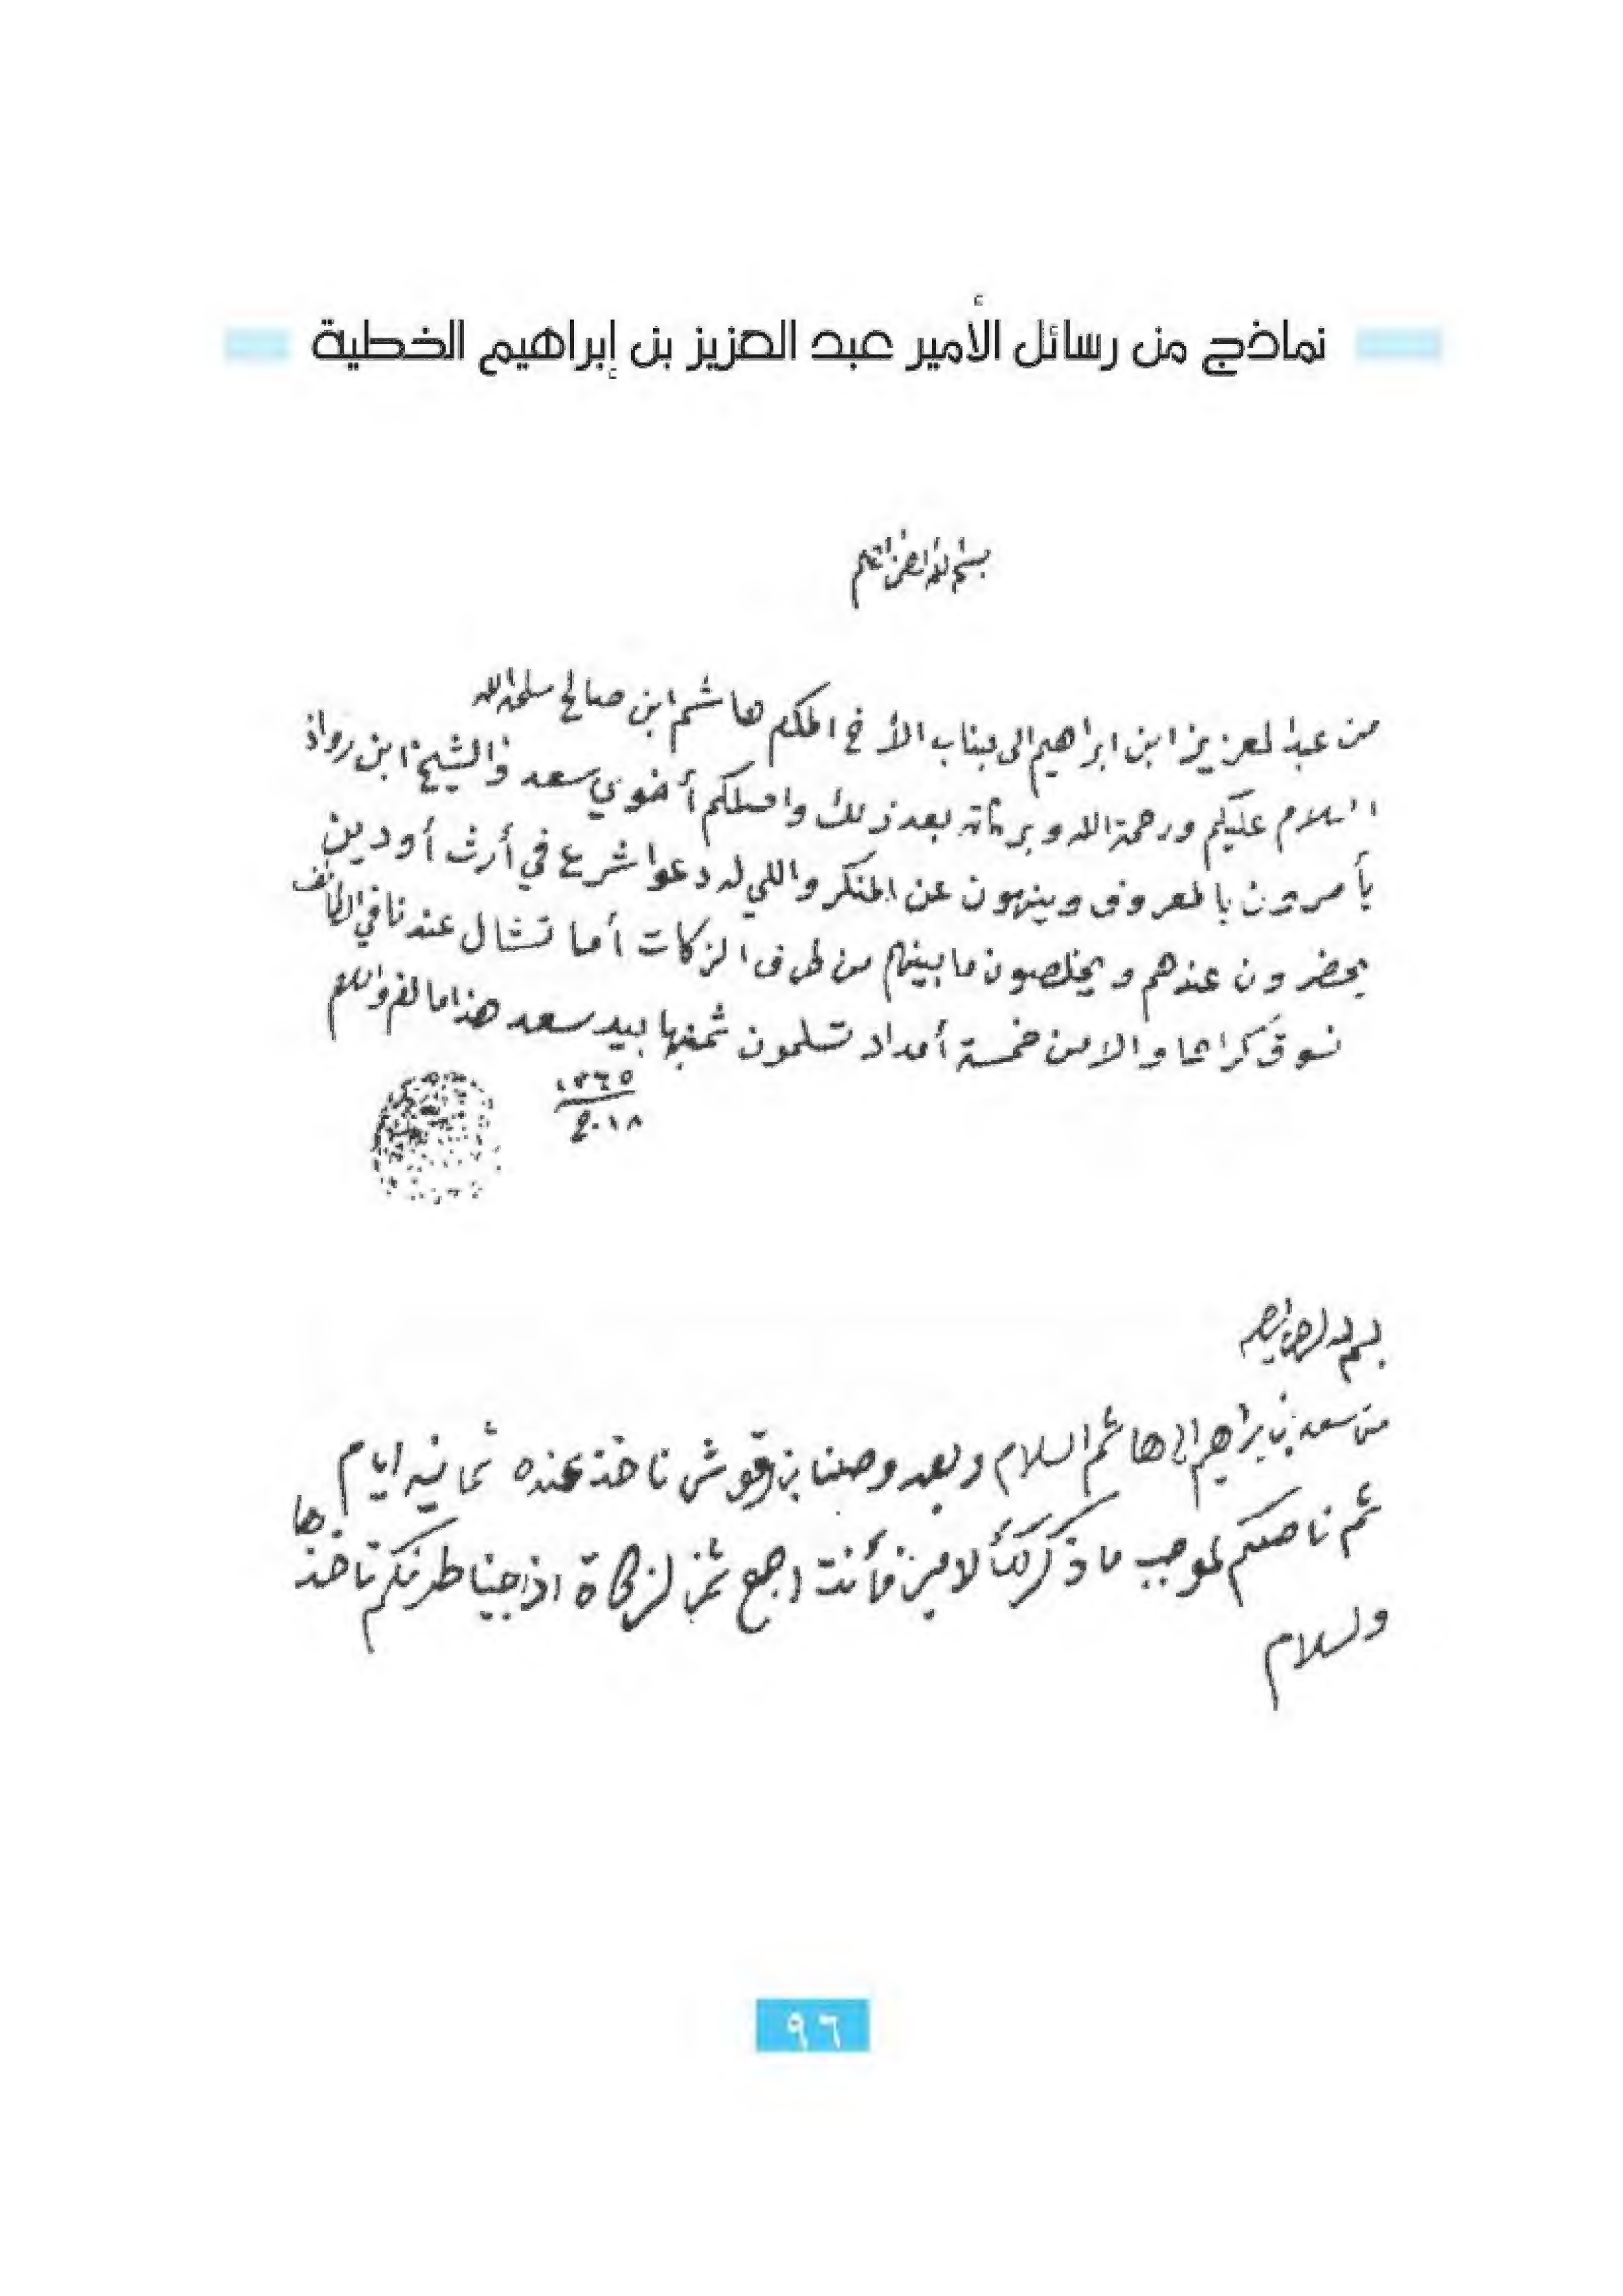 نماذج من رسائل الأمير عبد العزيز بن إبراهيم الخطية
بسم الله الرحمن الرحيم
من عبد العزيز ابن ابراهيم الى جناب الأخ المكرم هاشم ابن صالح سلمه الله
السلام عليكم ورحمة الله وبركاته بعد ذلك واصلكم أخوي سعد والشيخ ابن رواذ
يأمرون بالمعروف وينهون عن المنكر واللي له دعوا شرع في أرث أو دين
يحضرون عندهم ويخلصون ما بينهم من طرف الزكات أما تشال عندنا في الطائف
نسوق كراها والا من خمسة أمداد تسلمون ثمنها بيد سعد هذا ما لزم والسلام
١٣٦٥
بسم الله الرحمن الرحيم
من سعد بن ابراهيم الى هاشم السلام وبعد وصلنا بن قوش ناخذ عنده ثمانيه ايام
ثم ناصلكم بموجب ما ذكر لك ألامير فأنت اجمع ثمن لزكاة اذا جينا طرفكم ناخذها
ولسلام
٩٦